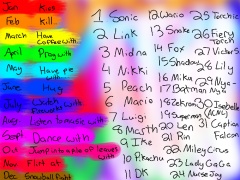 Jan Kiss
Feb Kill
March Have coffee with
April Prag with
May Have pe with
June Hug
July Watch with
Aug Listen to music with
Sept Dance with
Oct Jump into a pile of leaves with
Nov Flirt at
Dec Snowball fight
1 Sonic
2 Link
3 Midna
4 Nikki
5 Peach
6 Mario
7 Luigi
8 Marth
9 Ike
10 Pikachu
11 DK
12 Wario
13 Snake
14 Fox
15 Shadow
16 Miku
17 Batman
18 Zekrom
19
20 Len
21 Rin
22 Miley Cirus
23 Lady GaGa
24 Nurse Joy
25 Torchic
26
27 Victor
28 Lily
29 Nya-Nya
30 Isabelle
31 Captian Falcon